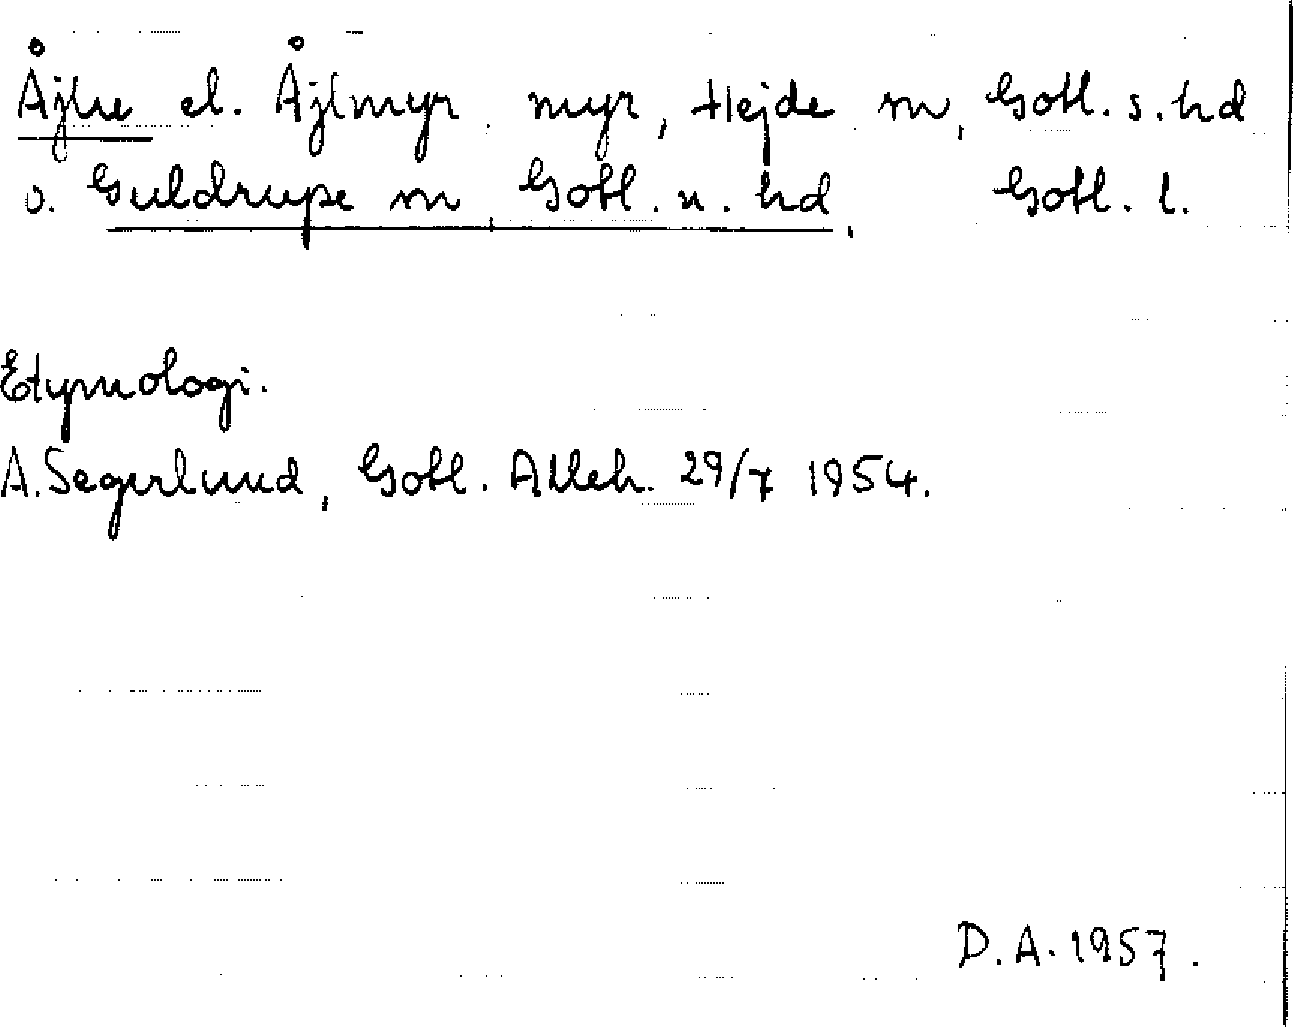 Åjlne el. Åjlmyr myr, Hejde sn, Gotl. s. hd
o. Guldrupe sn, Gotl. n. hd, Gotl. l.
Etymologi.
A. Segerlund, Gotl. Alleh. 29/7 1954.
D.A. 1957.